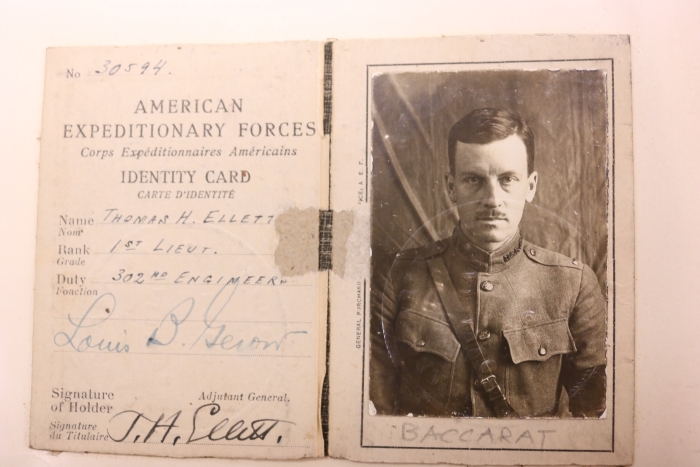 No 30594.
AMERICAN
EXPEDITIONARY FORCES
Corps Expéditionnaires Américains
IDENTITY CARD
CARTE D'IDENTITÉ
Name THOMAS H. ELLETT
Nom
Rank 1ST LIEUT.
Grade
Duty 302ND ENGINEERS
Fonction
Louis B. Gerow
Signature Adjutant General.
of Holder
Signature
du Titulaire T. H. Ellett.
A. E. F.
GENERAL PURCHASI
BACCARAT